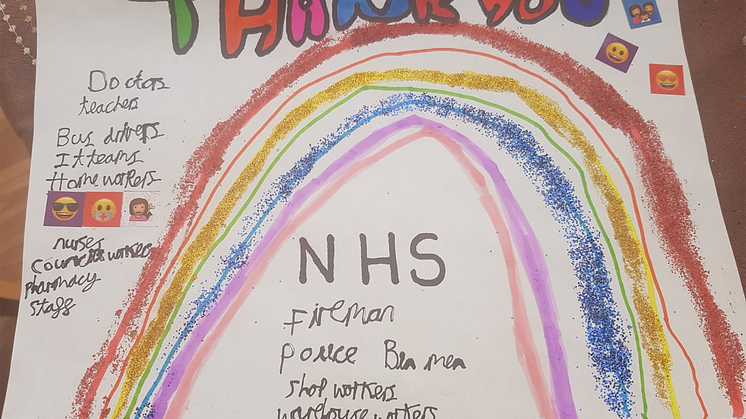 THANK YOU
Doctors
teachers
Bus drivers
It teams
Home workers
nurses
workers
pharmacy
staff
NHS
Fireman
Police Bin men
shop workers
warehouse workers